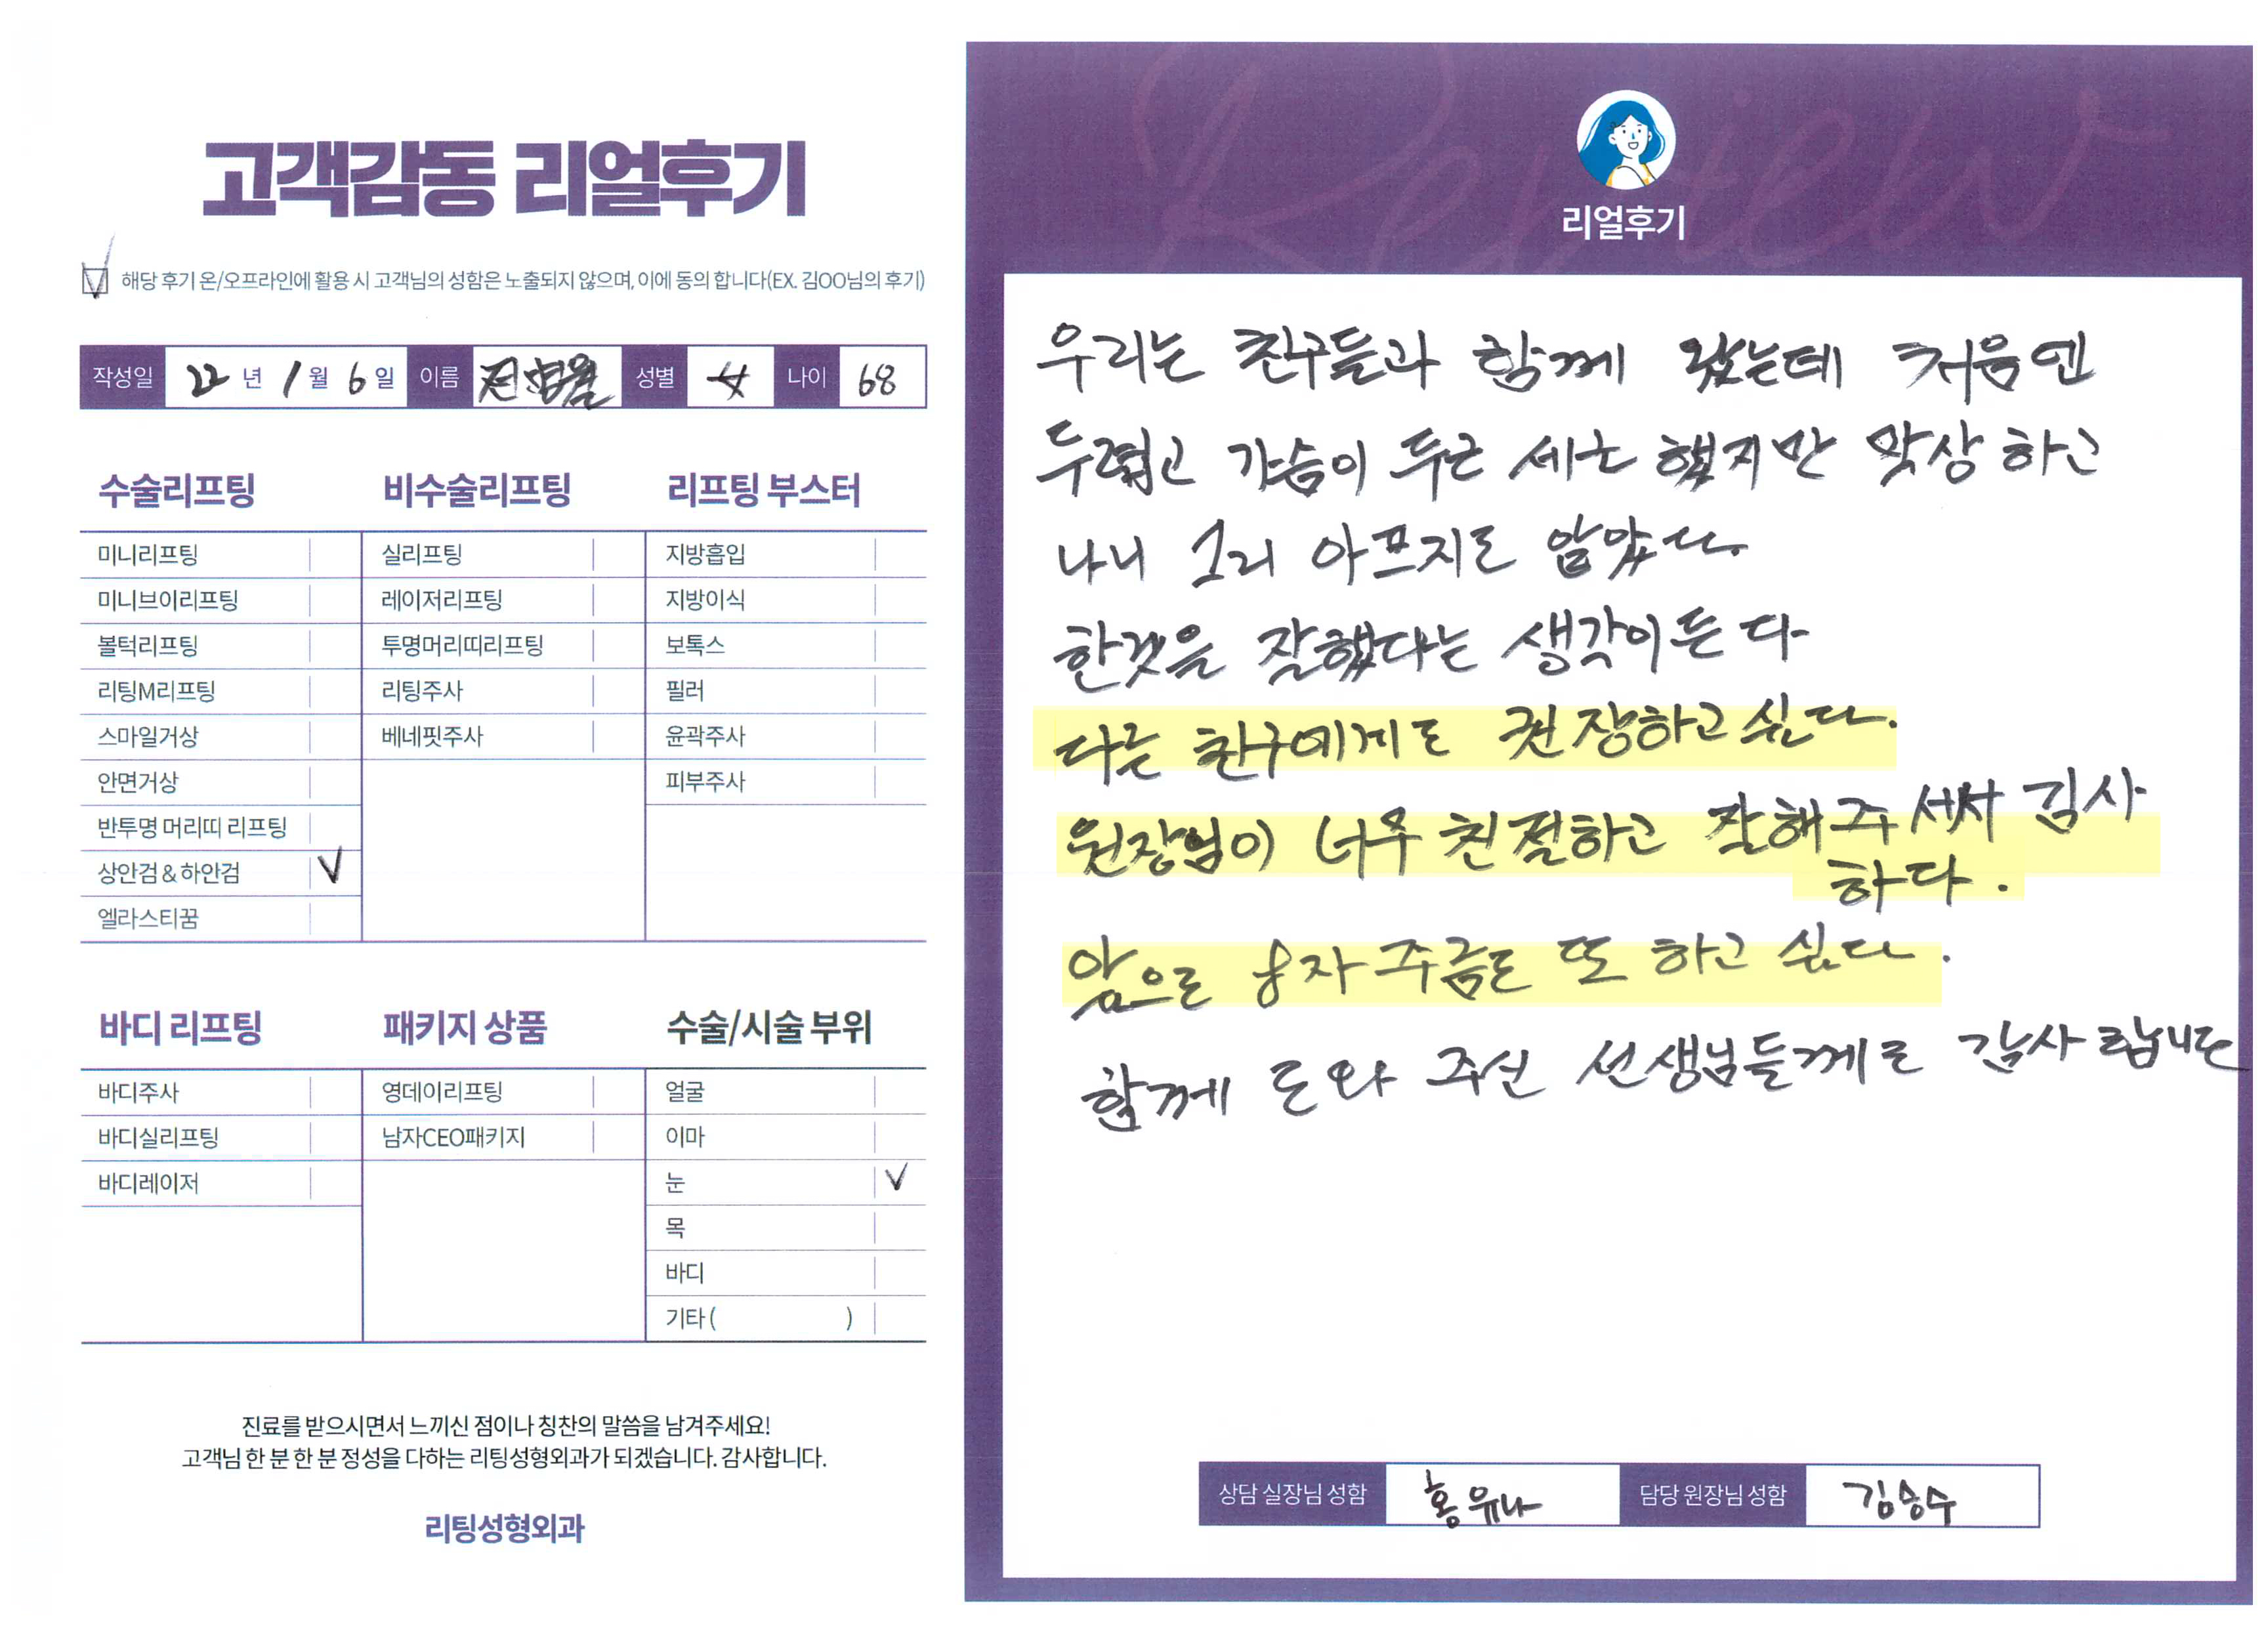 고객감동 리얼후기
해당 후기 온/오프라인에 활용 시 고객님의 성함은 노출되지 않으며, 이에 동의 합니다(EX. 김OO님의 후기)
작성일 22 년 1 월 6 일 이름 성별 녀 나이 68
수술리프팅 비수술리프팅 리프팅 부스터
미니리프팅 실리프팅 지방흡입
미니브이리프팅 레이저리프팅 지방이식
볼턱리프팅 투명머리띠리프팅 보톡스
리팅M리프팅 리팅주사 필러
스마일거상 베네핏주사 윤곽주사
안면거상 피부주사
반투명 머리띠 리프팅
상안검 & 하안검 V
엘라스티꿈
바디 리프팅 패키지 상품 수술/시술 부위
바디주사 영데이리프팅 얼굴
바디실리프팅 남자CEO패키지 이마
바디레이저 눈 V
목
바디
기타 ( )
진료를 받으시면서 느끼신 점이나 칭찬의 말씀을 남겨주세요!
고객님 한 분 한 분 정성을 다하는 리팅성형외과가 되겠습니다. 감사합니다.
리팅성형외과
Review
리얼후기
우리는 친구들과 함께 왔는데 처음엔
두렵고 가슴이 두근 세근 했지만 막상 하고
나니 그리 아프지도 않았다.
한것을 잘했다는 생각이 든다
다른 친구에게도 권장하고 싶다.
원장님이 너무 친절하고 잘해 주셔서 감사
하다.
앞으로 주름도 또 하고 싶다.
함께 도와 주신 선생님들께도 감사
상담 실장님 성함 홍유나 담당 원장님 성함 김승수